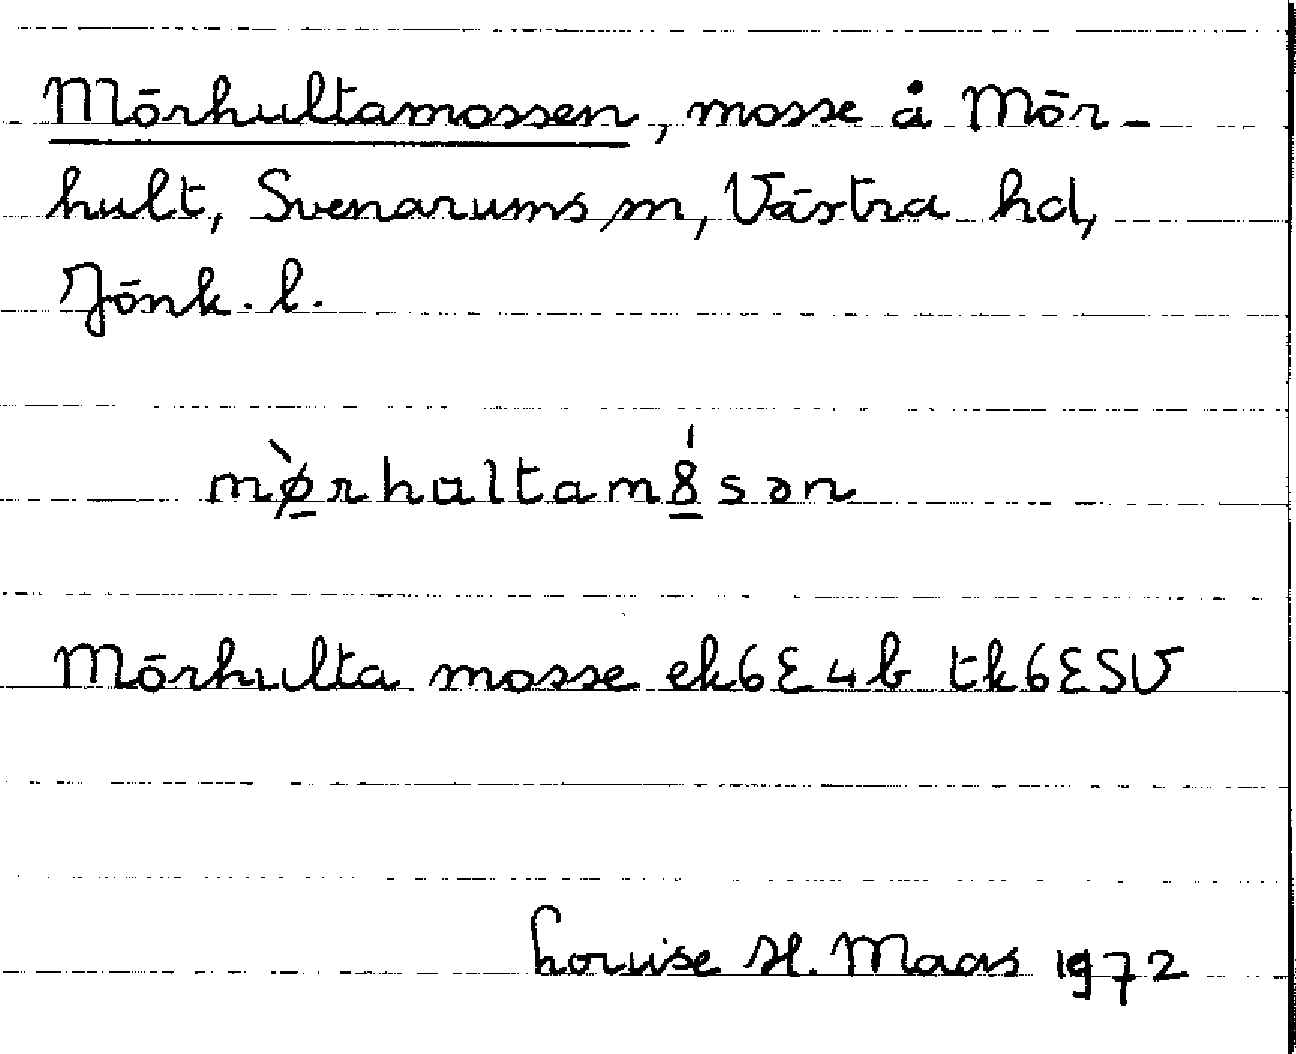 Mörhultamossen, mosse å Mör-
hult, Svenarums sn, Västra hd,
Jönk. l.
mø̀rhultam8́sən
Mörhulta mosse ek6E4b tk6ESV
Louise H. Maas 1972